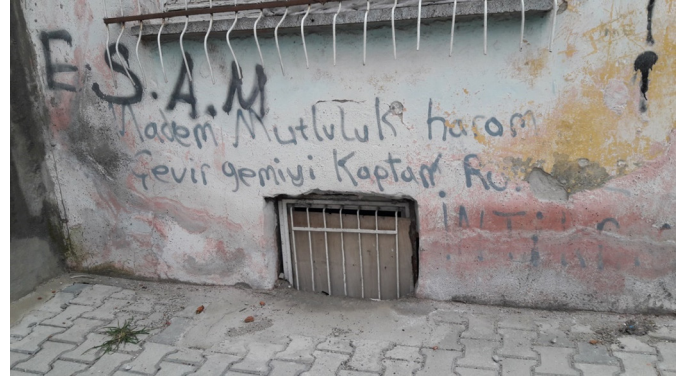 E.S.A.M
Madem Mutluluk haram
Çevir gemiyi Kaptan
İNTİ